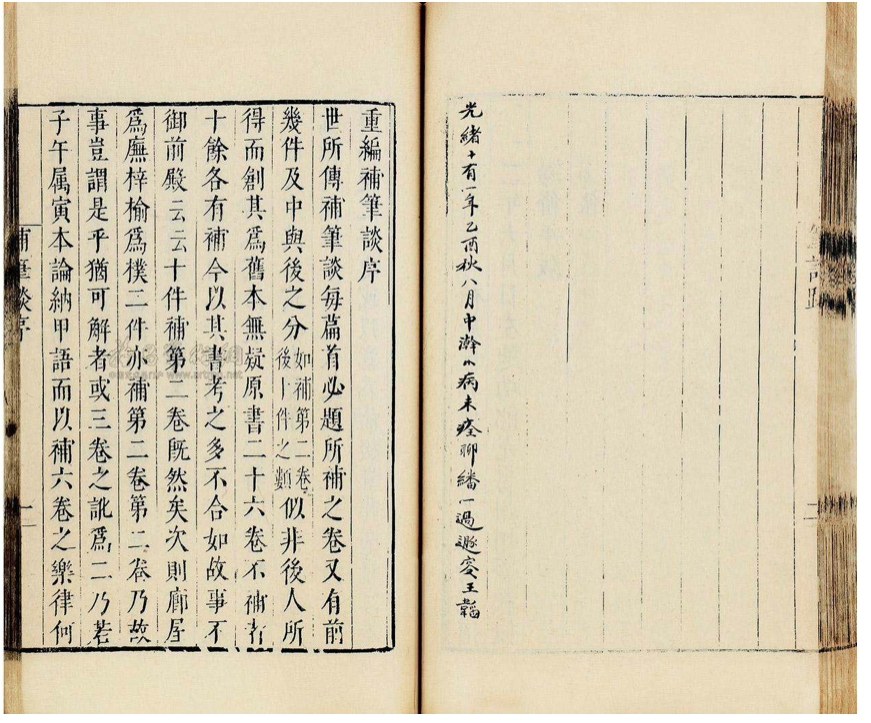 光緒十有一年乙酉秋八月中澣小病未痊聊繙一過遯窟王韜
重編補筆談序
世所傳補筆談每篇首必題所補之卷又有前
幾件及中與後之分如補第二卷後十件之類似非後人所
得而創其爲舊本無疑原書二十六卷不補者
十餘各有補今以其書考之多不合如故事不
御前殿云云十件補第二卷旣然矣次則廊屋
爲廡梓榆爲樸二件亦補第二卷第二卷乃故
事豈謂是乎猶可解者或三卷之訛爲二乃若
子午属寅本論納甲語而以補六卷之樂律何
補筆談序
一
二